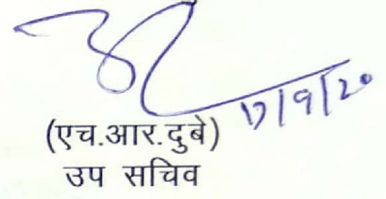 17/9/20
(एच.आर.दुबे)
उप सचिव